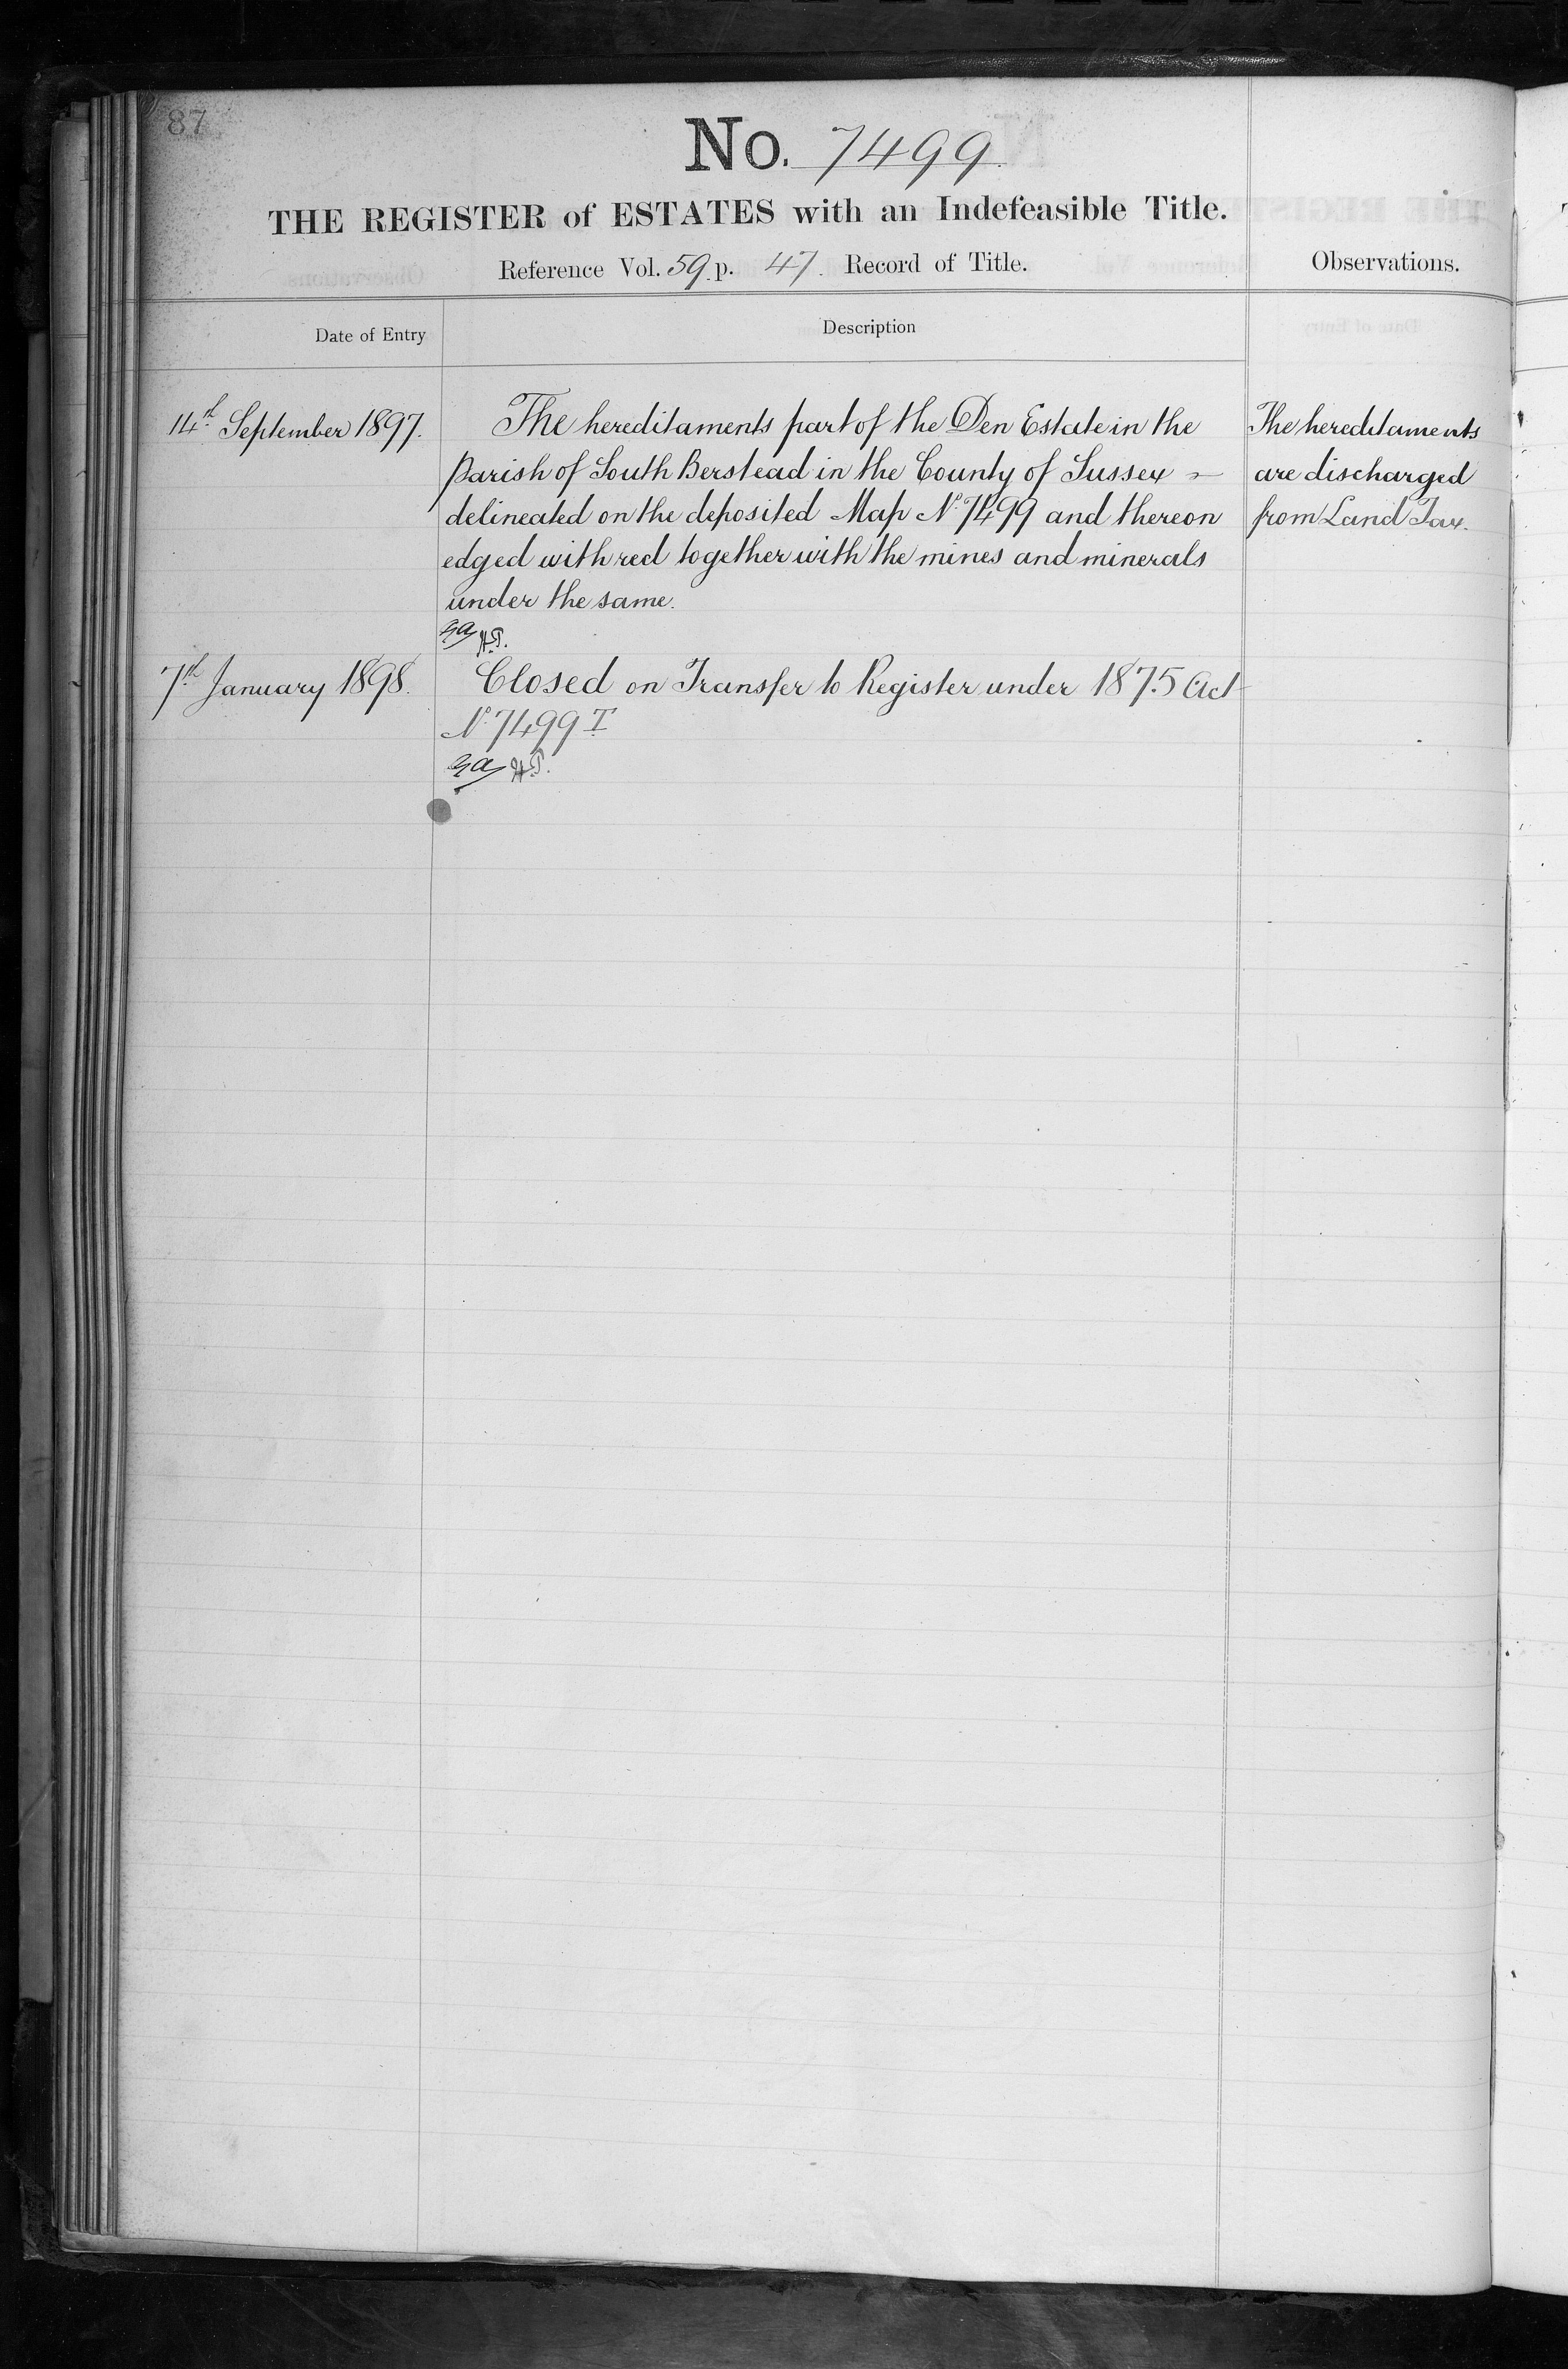 87
No. 7499
THE REGISTER of ESTATES with an Indefeasible Title.
Reference Vol. 59 p. 47. Record of Title.
Observations.
Date of Entry
Description
14th September 1897.
The hereditaments part of the Den Estate in the
Parish of South Berstead in the County of Sussex
delineated on the deposited Map No. 7499 and thereon
edged with red together with the mines and minerals
under the same.
The hereditaments
are discharged
from Land Tax.
7th January 1898.
Closed on Transfer to Register under 1875 Act
No. 7499 I